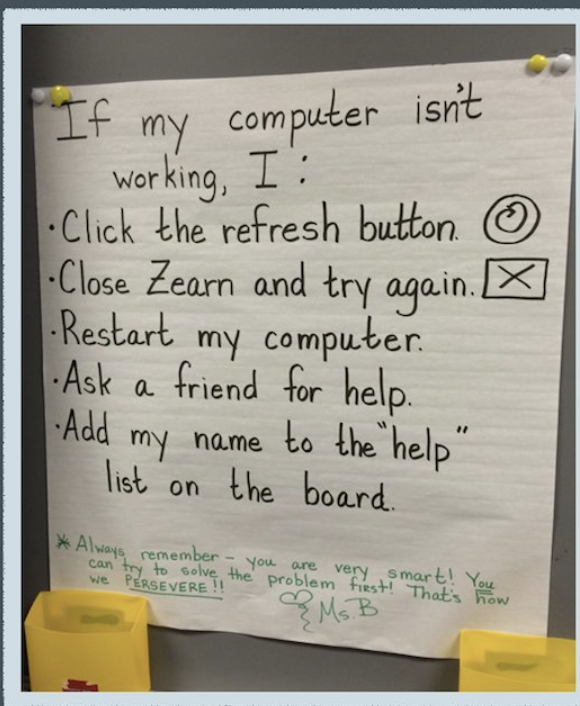 If my computer isn't
working, I:
·Click the refresh button.
·Close Zearn and try again.
·Restart my computer.
·Ask a friend for help.
·Add my name to the "help"
list on the board.
* Always remember - you are very smart! You
can try to solve the problem first! That's how
we PERSEVERE!!
Ms. B